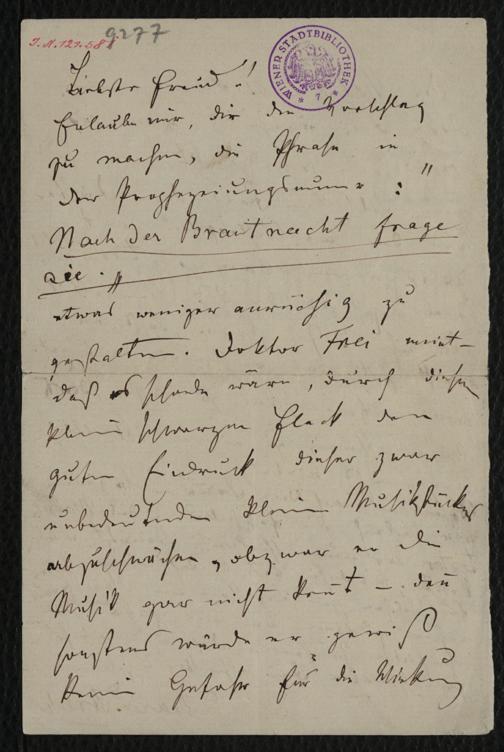 I.N. 121.581
9277
WIENER STADTBIBLIOTHEK
* 7 *
Liebster Freund!
Erlaube mir, dir den Vorschlag
zu machen, die Phrase in
der Prophezeiungsnummer: "
Nach der Brautnacht frage
sie."
etwas weniger anrüchig zu
gestalten. Doktor Frei meint –
daß es schade wäre, durch diesen
kleinen schwarzen Fleck den
guten Eindruck dieses zwar
unbedeutenden kleinen Musikstückes
abzuschwächen, obzwar er die
Musik gar nicht kent – den̅
sonstens würde er gewiß
keine Gefahr für die Wirkung